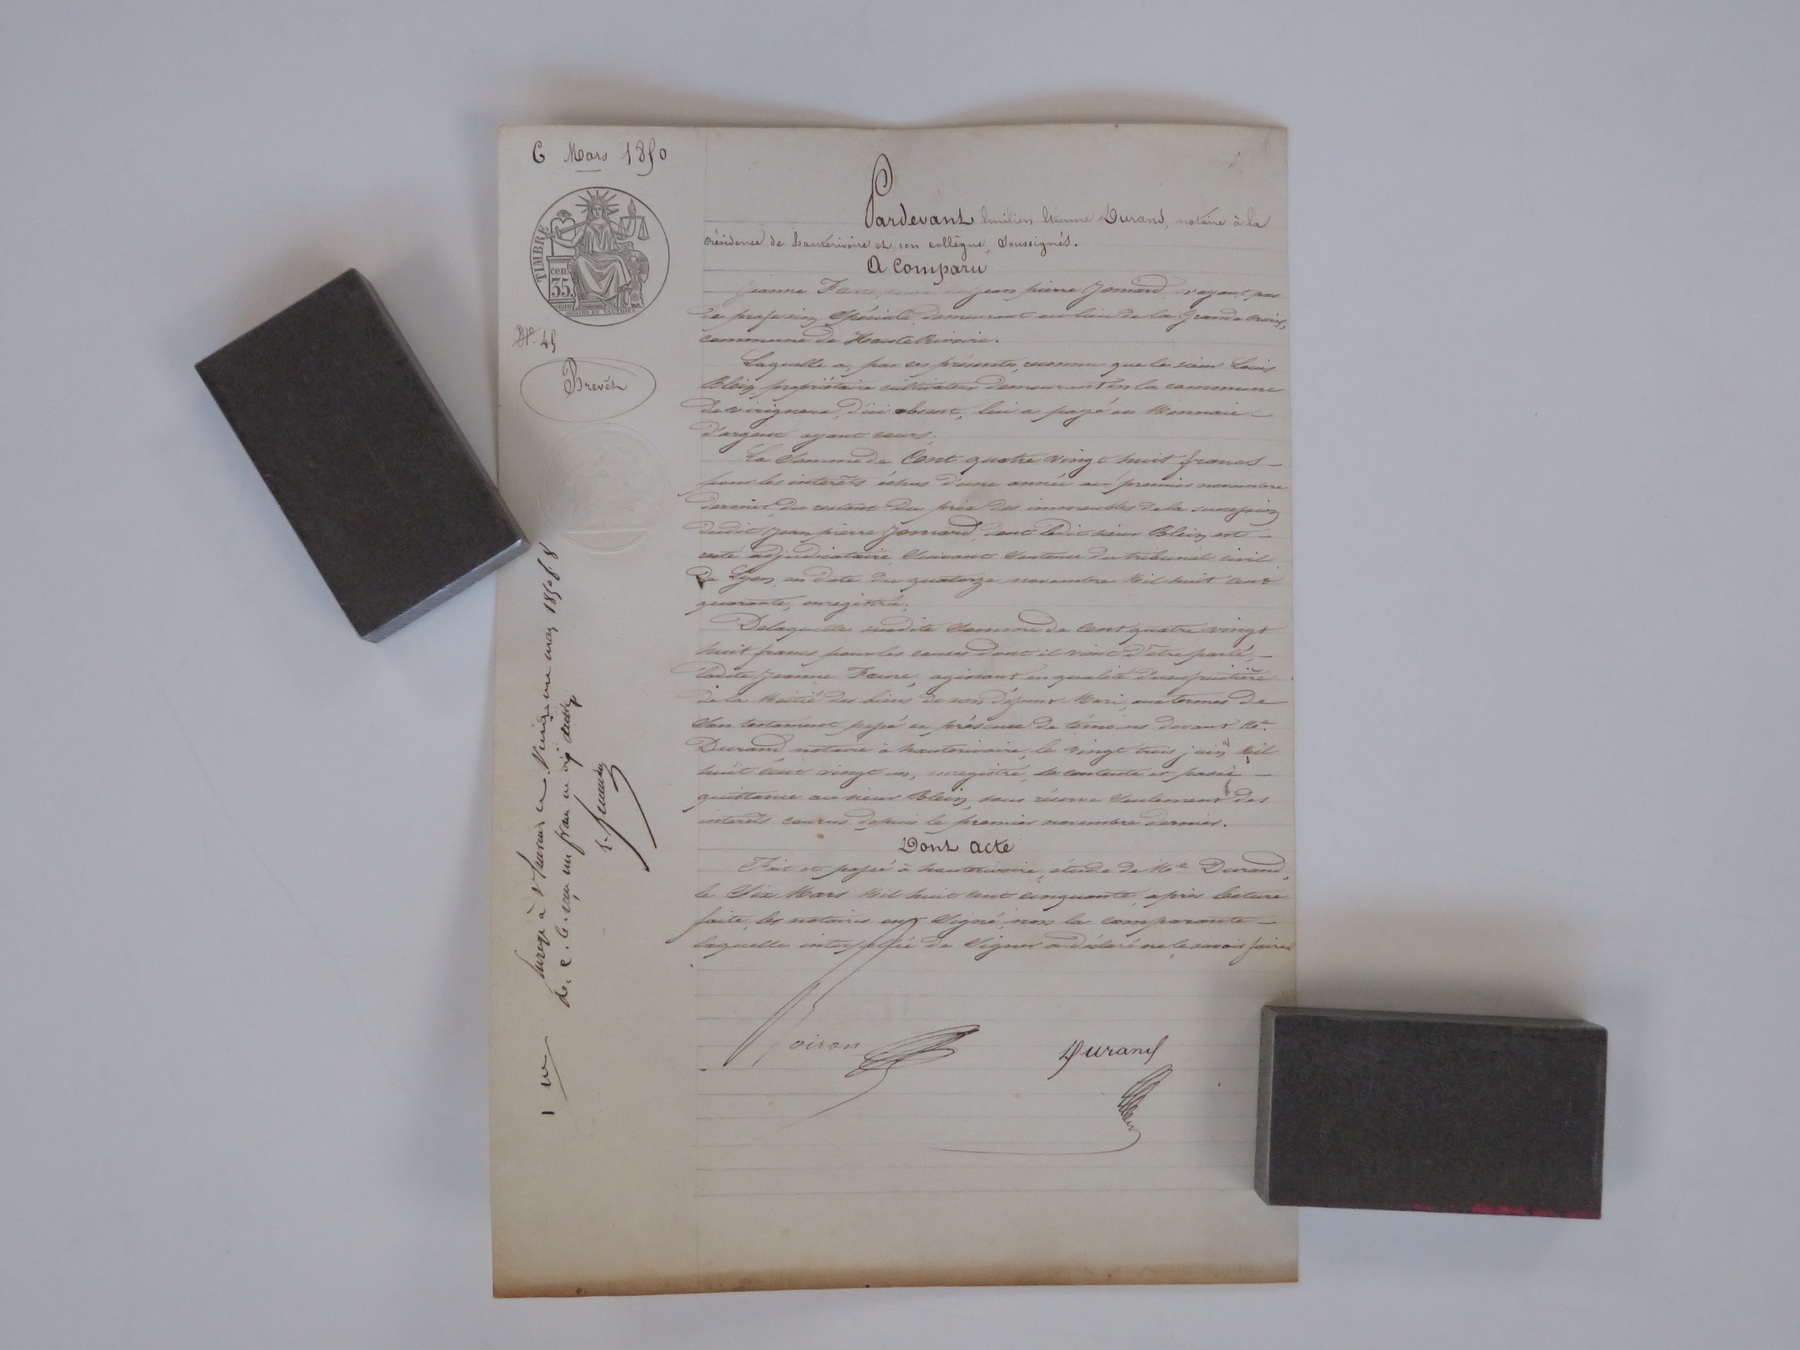 6 Mars 1850
TIMBRE
cen.
35.
N.° 45
Brevet
Pardevant Emilien Etienne Durand, notaire à la
résidence de hauterivoire et son collègue, soussignés.
A Comparu
Jeanne Favre, jean pierre Jomard, n'ayant pas
de profession Spéciale, demeurant au lieu de la Grande Croix,
commune de Haute Rivoire.
Laquelle a, par ces présentes, reconnu que le sieur Louis
Blein, propriétaire cultivateur demeurant en la commune
de virigneux, d'ici absent, lui a payé en Monnaie
d'argent ayant cours,
La Somme de Cent quatre vingt huit francs
pour les intérêts échus d'une année au premier novembre
dernier, du restant du prix des immeubles de la succession
dudit Jean pierre Jomard, dont ledit sieur Blein est
resté adjudicataire, Suivant Sentence du tribunal civil
de Lyon, en date du quatorze novembre Mil huit cent
quarante, enregistrée.
Delaquelle susdite Somme de Cent quatre vingt
huit francs pour les causes dont il vient d'être parlé,
ladite Jeanne Favre, agissant en qualité d'usufruitière
de la Moitié des biens de son défunt Mari, aux termes de
Son testament passé en présence de témoins devant Me
Durand notaire à hauterivoire, le vingt trois juin Mil
huit cent vingt un, enregistré, se contente et passe
quittance au sieur Blein, sous réserve Seulement des
intérêts courus depuis le premier novembre dernier.
Dont acte
Fait et passé à hauterivoire, étude de Me Durand,
le Six Mars Mil huit cent cinquante, après lecture
faite, les notaires ont Signé, non la comparante
laquelle interpellée de Signer a déclaré ne le savoir faire.
Voiron
Durand